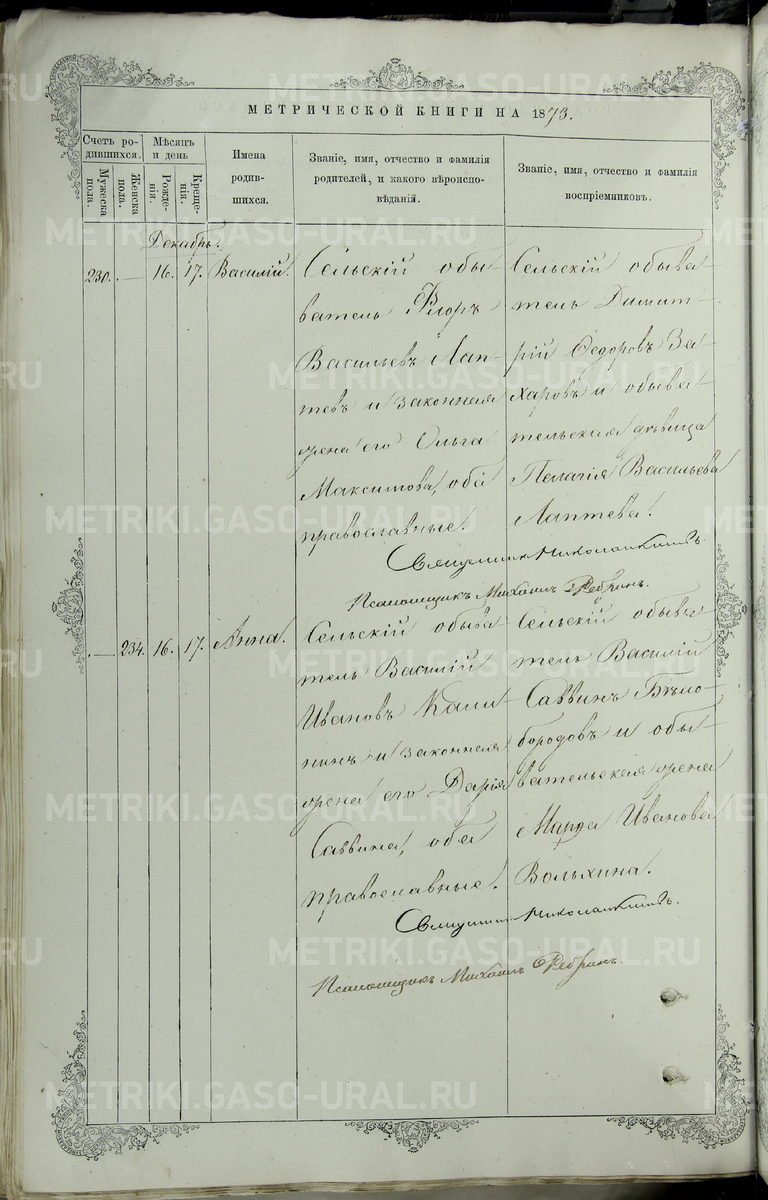 МЕТРИЧЕСКОЙ КНИГИ НА 1873.
Счетъ ро-
дившихся.
Мѣсяцъ
и день
Мужеска
пола.
Женска
пола.
Рожде-
нія.
Креще-
нія.
Имена
родив-
шихся.
Званіе, имя, отчество и фамилія
родителей, и какого вѣроиспо-
вѣданія.
Званіе, имя, отчество и фамилія
воспріемниковъ.
Декабрь.
230. — 16. 17. Василій.
Сельскій обы-
ватель Ѳлоръ
Васильевъ Лап-
тевъ и законная
жена его Ольга
Максимова, оба
православные.
Сельскій обыва-
тель Димит-
рій Ѳедоровъ За-
харовъ и обыва-
тельская дѣвица
Пелагія Васильева
Лаптева.
Священник
Псаломщикъ Михаилъ Ребринъ.
— 234. 16. 17. Анна.
Сельскій обыва
тель Василій
Ивановъ Кали-
нинъ и законная
жена его Дарія
Саввина, оба
православные.
Сельскій обыва-
тель Василій
Саввинъ Бѣло-
бородовъ и обы-
вательская жена
Марѳа Иванова
Вольхина.
Священник
Псаломщикъ Михаилъ Ребринъ.
METRIKI.GASO-URAL.RU